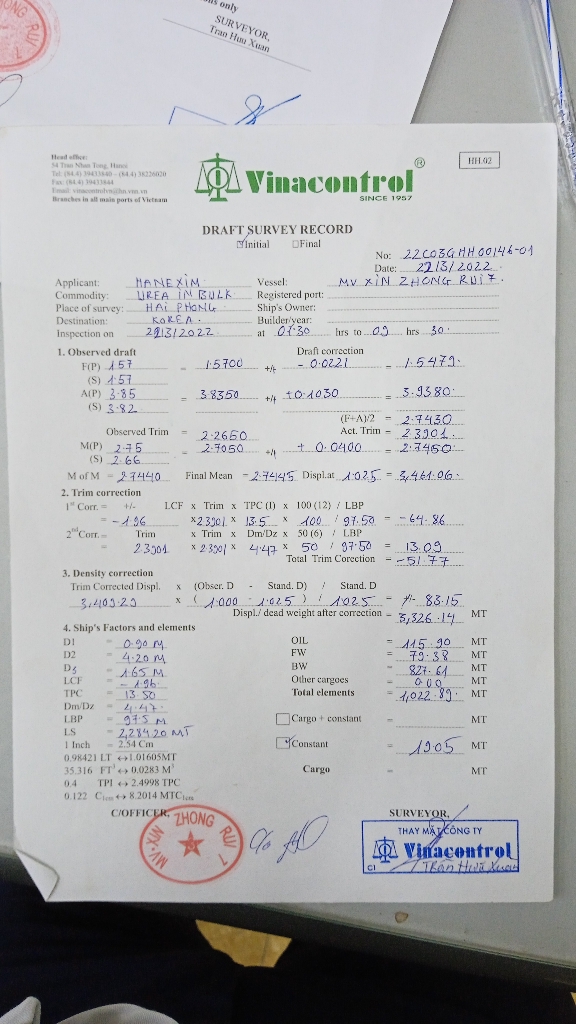 ns only
SURVEYOR,
Tran Huu Xuan
ZHONG RUI 7
Head office:
54 Tran Nhan Tong, Hanoi
Tel: (84.4) 39433840 - (84.4) 38226020
Fax: (84.4) 39433844
Email: vinacontrolvn@hn.vnn.vn
Branches in all main ports of Vietnam
Vinacontrol®
SINCE 1957
HH.02
DRAFT SURVEY RECORD
☑Initial ☐Final
No: 22C03GHH00146-01
Date: 22/3/2022
Applicant: HANEXIM Vessel: MV XIN ZHONG RUI 7.
Commodity: UREA IN BULK Registered port:
Place of survey: HAI PHONG Ship's Owner:
Destination: KOREA. Builder/year:
Inspection on 22/3/2022 at 07:30 hrs to 09 hrs 30.
1. Observed draft Draft correction
F(P) 1.57 = 1.5700 +/- - 0.0221 = 1.5479.
(S) 1.57
A(P) 3.85 = 3.8350 +/- +0.1030 = 3.9380
(S) 3.82
(F+A)/2 = 2.7430
Observed Trim = 2.2650 Act. Trim = 2.3901.
M(P) 2.75 = 2.7050 +/- + 0.0400 = 2.7450
(S) 2.66
M of M = 2.7440 Final Mean = 2.7445 Displ.at 1.025 = 3,461.06.
2. Trim correction
1st Corr. = +/- LCF x Trim x TPC (I) x 100 (12) / LBP
= -1.96 x 2.3901 x 13.5 x 100 / 97.50 = -64.86
2nd Corr. = Trim x Trim x Dm/Dz x 50 (6) / LBP
= 2.3901 x 2.3901 x 4.47 x 50 / 97.50 = 13.09
Total Trim Corection = -51.77
3. Density correction
Trim Corrected Displ. x (Obser. D - Stand. D) / Stand. D
3,409.29 x (1.000 - 1.025) / 1.025 = +/- 83.15
Displ./ dead weight after correction = 3,326.14 MT
4. Ship's Factors and elements
D1 = 0.90 M OIL = 115.90 MT
D2 = 4.20 M FW = 79.38 MT
D3 = 1.65 M BW = 827.61 MT
LCF = -1.96. Other cargoes = 0.00 MT
TPC = 13.50 Total elements = 1,022.89. MT
Dm/Dz = 4.47.
LBP = 97.5 M ☐Cargo + constant = MT
LS = 2,284.20 MT
1 Inch = 2.54 Cm ☑Constant = 19.05 MT
0.98421 LT ↔1.01605MT
35.316 FT³ ↔ 0.0283 M³ Cargo = MT
0.4 TPI ↔ 2.4998 TPC
0.122 C1cm ↔ 8.2014 MTC1cm
C/OFFICER, SURVEYOR,
MV. XIN ZHONG RUI 7
THAY MẶT CÔNG TY
Vinacontrol
C1
Trần Hữu Xuân